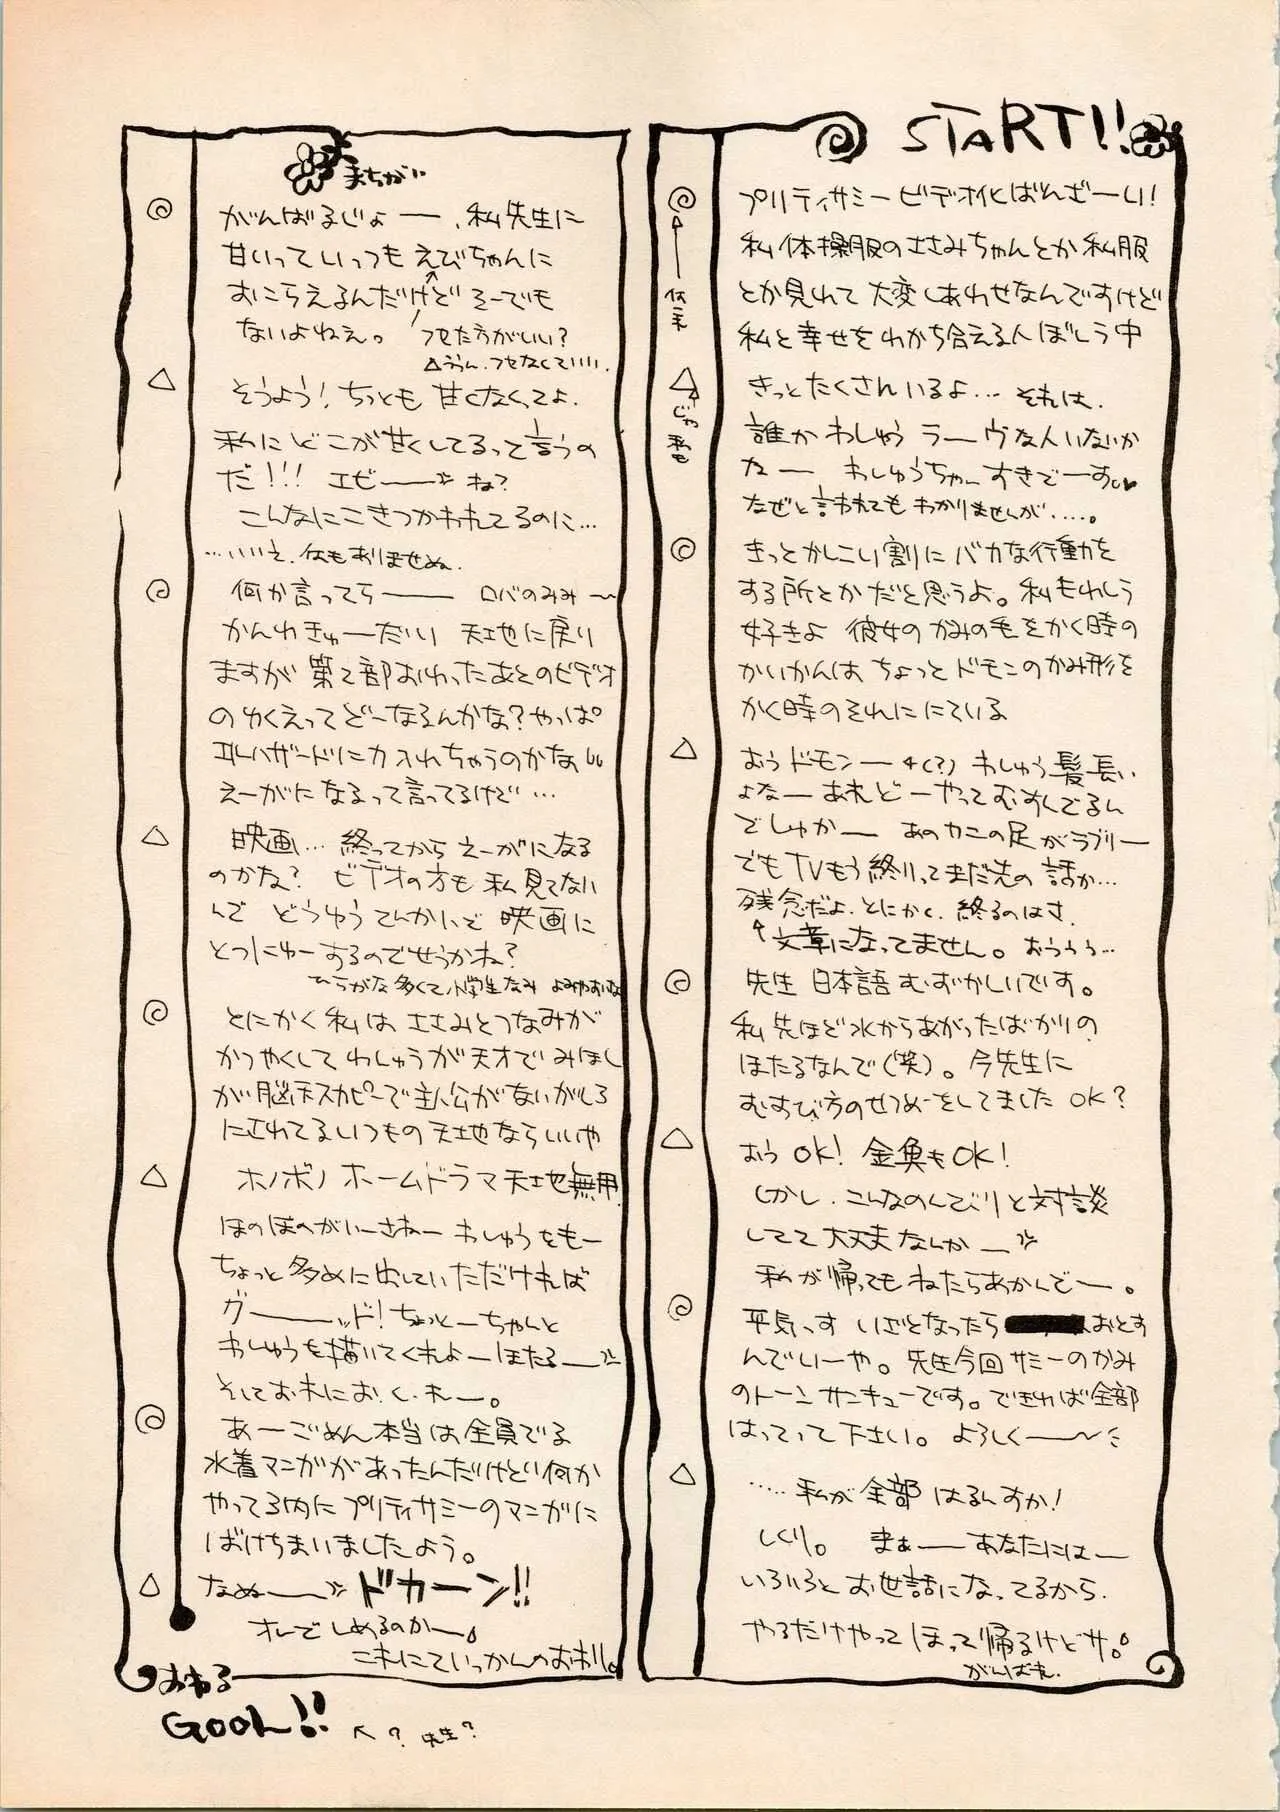 START!!
プリティサミービデオ化ばんざーい!
私体操服のささみちゃんとか私服
とか見れて大変しあわせなんですけど
私と幸せをわかち合える人ぼしう中
きっとたくさんいるよ…それは、
誰かわしゅうラーヴな人いないか
なー わしゅうちゃーすきでーす♥
なぜと言われてもわかりませんが……。
きっとかしこい割にバカな行動を
する所とかだと思うよ。私もわしう
好きよ 彼女のかみの毛をかく時の
かいかんはちょっとドモンのかみ形を
かく時のそれににている
おうドモンー4(?) わしゅう髪長い
よなー あれどーやってむすんでるん
でしゅかー あのカニの足がラブリー
でもTVもう終りってまだ先の話か…
残念だよ、とにかく、終るのはさ、
↑文章になってません。おううう…
先生 日本語むずかしいです。
私先ほど水からあがったばかりの
ほたるなんで(笑)。今先生に
むすび方のせつめーをしてました OK?
おう OK! 金魚もOK!
しかし、こんなのんびりと対談
してて大丈夫なんかー
私が帰ってもねたらあかんでー。
平気っす いざとなったら おとす
んでいーや。先生今回サミーのかみ
のトーンサンキューです。できれば全部
はってって下さい。よろしくー〜
……私が全部はるんすか!
しくり。まぁーあなたにはー
いろいろとお世話になってるから、
やるだけやってほって帰るけどサ。
がんばれ、
まちがい
がんばるじょー、私先生に
甘いっていっつもえびちゃんに
おこらえるんだけど そーでも
ないよねぇ。フセた方がいい?
△ううん、フセなくていい、
そうよう!ちっとも甘くなくってよ、
私にどこが甘くしてるって言うの
だ!!! エビー ね?
こんなにこきつかわれてるのに…
…いいえ、何もありませぬ、
何か言ってらー ロバのみみ〜
かんわきゅーだい 天地に戻り
ますが第2部おわったあとのビデオ
のゆくえってどーなるんかな?やっぱ
エルハザードに力入れちゃうのかなぁ
えーがになるって言ってるけど…
映画…終ってからえーがになる
のかな? ビデオの方も私見てない
んで どうゆうてんかいで映画に
とつにゅーするのでせうかね?
ひらがな多くて小学生なみ よみやすいな
とにかく私はささみとつなみが
かつやくしてわしゅうが天才でみほし
が脳天スカピーで主人公がないがしろ
にされてるいつもの天地ならいいや
ホノボノホームドラマ天地無用
ほのぼのがいーさねー わしゅうをもー
ちょっと多めに出していただければ
グーーッド!ちょっとーちゃんと
わしゅうを描いてくれよーほたるー
そしてお木におくれー。
あーごめん本当は全員でる
水着マンガがあったんだけどい何か
やってる内にプリティサミーのマンガに
ばけちまいましたよう。
なぬー ドカーン!!
オレでしめるのかー
これにていっかんのおわり。
おわる